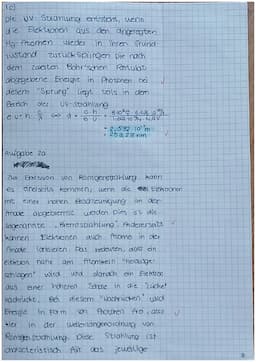 1c)
Die UV-Strahlung entsteht, wenn
die Elektronen aus den angeregten
Hg-Atomen wieder in ihren Grund-
zustand zurückspringen. Die nach
dem zweiten Bohr'schen Postulat
abgegebene Energie in Photonen bei
diesem "Sprung" liegt teils in dem
Bereich der UV-Strahlung.
Aufgabe 2a
Zur Emission von Röntgenstrahlung kann
es einerseits kommen, wenn die Elektronen
mit einer hohen Beschleunigung in der
Anode abgebremst werden. Dies ist die
sogenannte "Bremsstrahlung". Andererseits
können Elektronen auch Atome in der
Anode ionisieren. Das bedeutet, dass ein
Elektron nahe am Atomkern "herausge-
schlagen" wird und danach ein Elektron
aus einer höheren Schale in die "Lücke"
nachrückt. Bei diesem "Nachrücken" wird
Energie in Form von Photonen frei, also
hier in der Wellenlängenordnung von
Röntgenstrahlung. Diese Strahlung ist
charakteristisch für das jeweilige